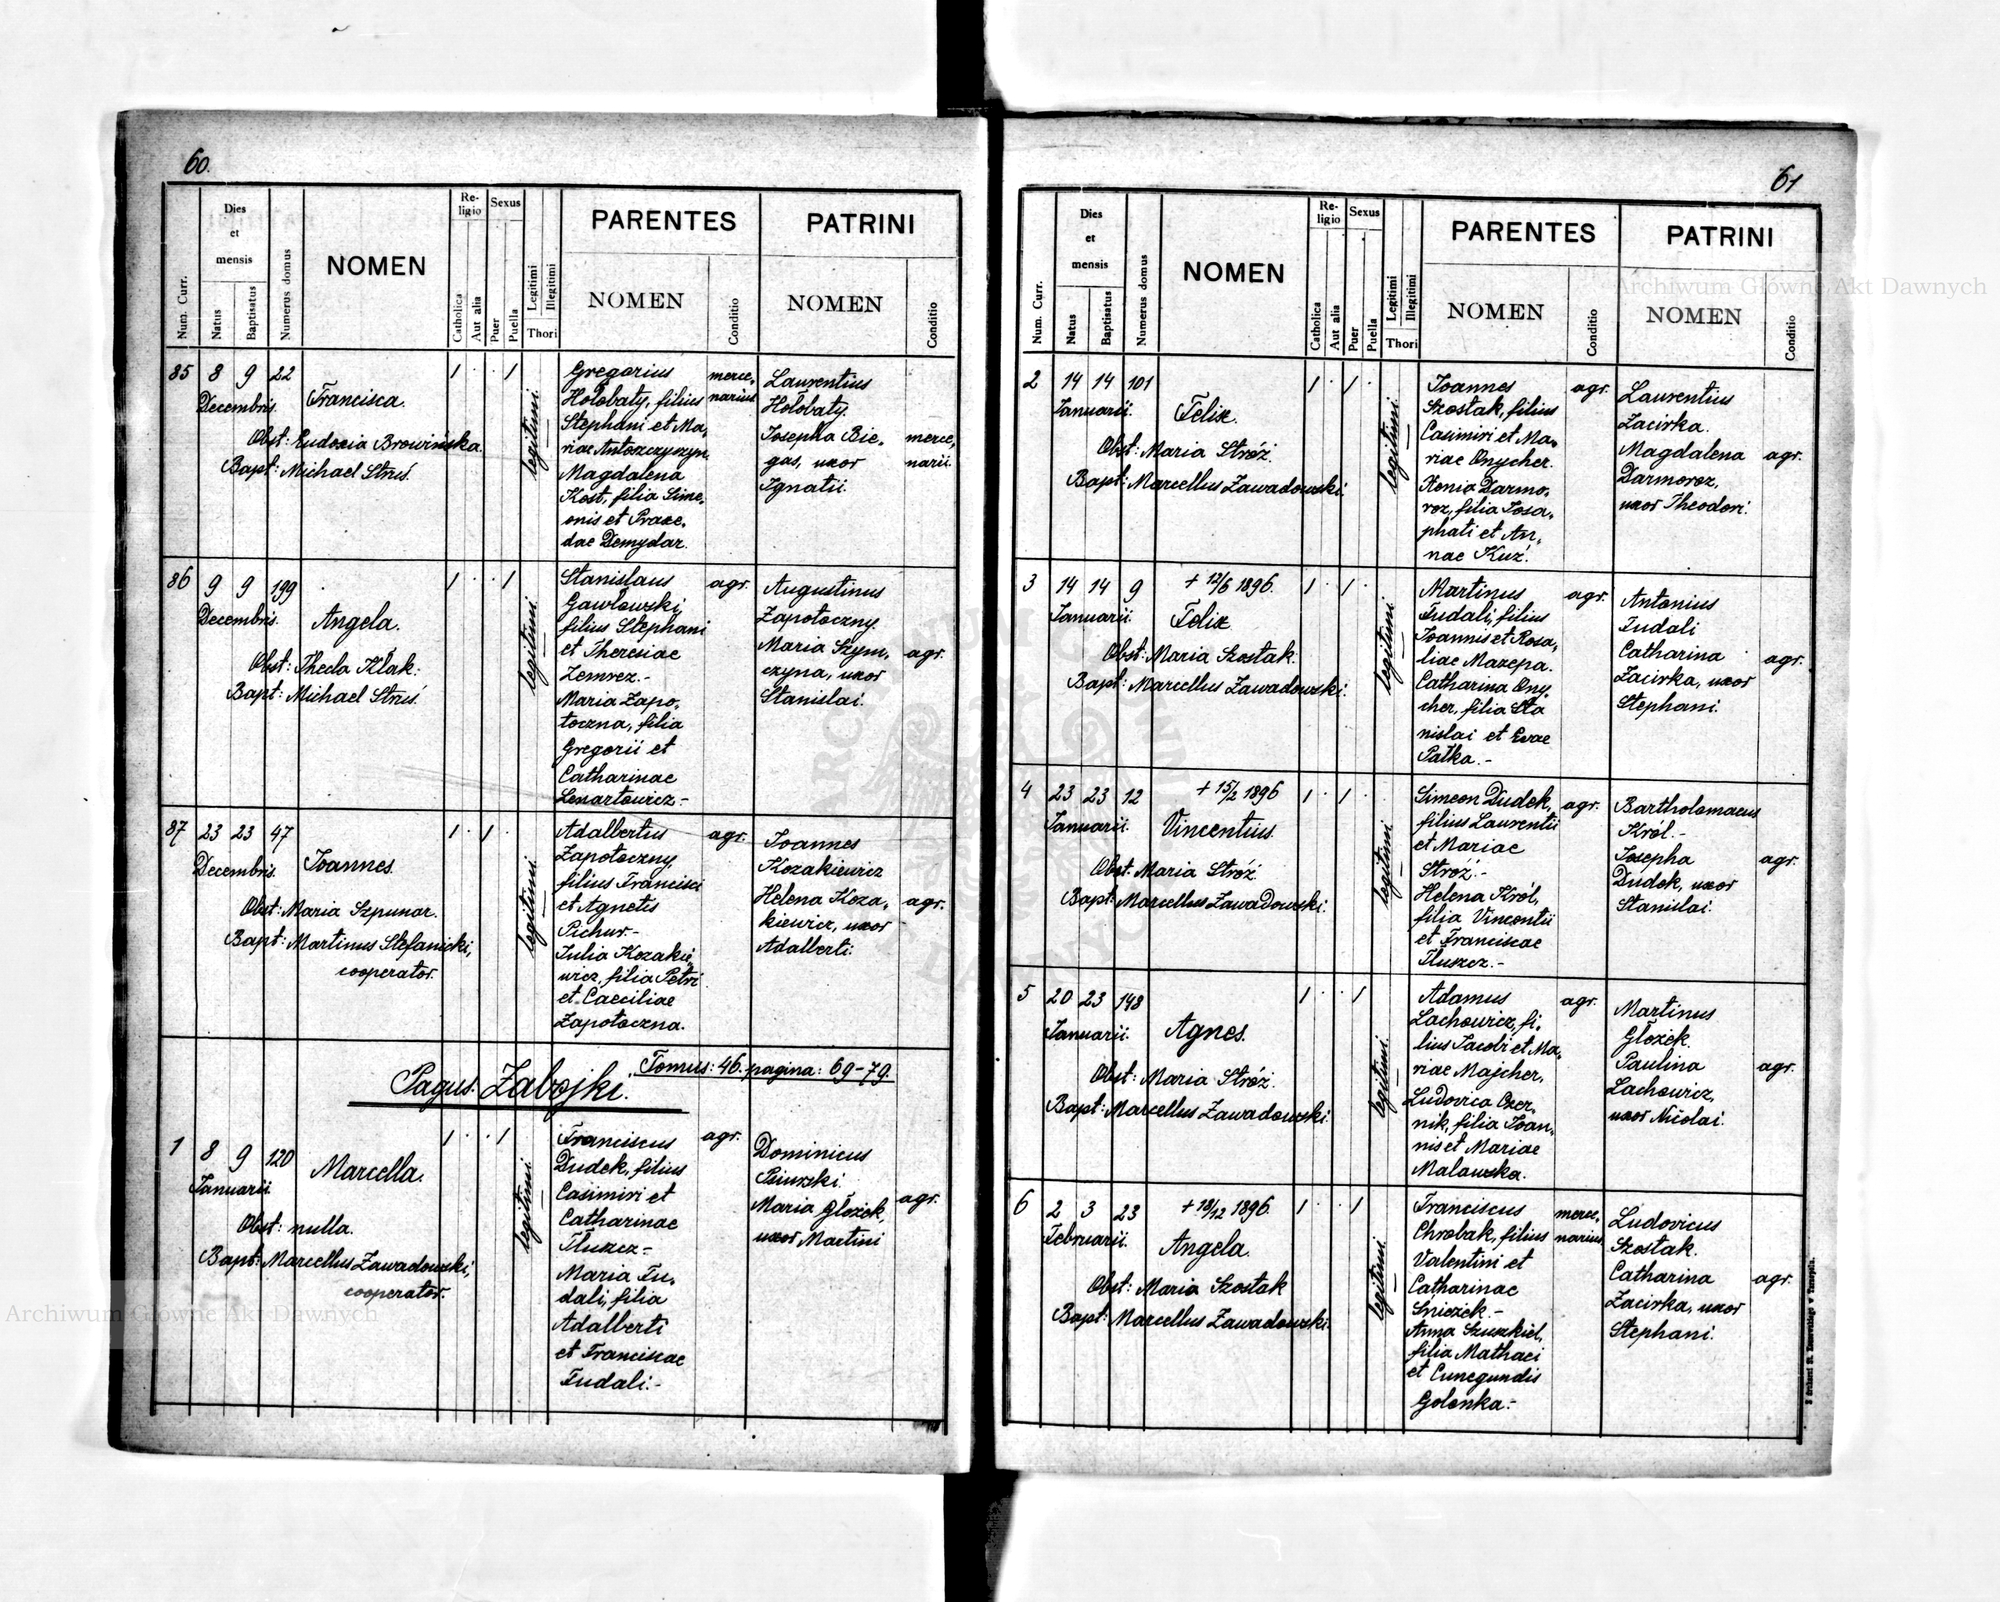 60.
Num. Curr.
Dies et mensis
Natus
Baptisatus
Numerus domus
NOMEN
Religio
Catholica
Aut alia
Sexus
Puer
Puella
Legitimi
Illegitimi
Thori
PARENTES
NOMEN
Conditio
PATRINI
NOMEN
Conditio
85 8 9 22
Decembris.
Francisca.
Obst: Eudoxia Browińska.
Bapt: Michael Struś.
legitimi
Gregorius
Hołobaty, filius
Stephani et Ma,
riae Antoszczyszyn.
Magdalena
Kost, filia Sime,
onis et Praxe,
dae Demydar.
merce,
narius
Laurentius
Hołobaty.
Josepha Bie,
gas, uxor
Ignatii.
merce,
narii.
86 9 9 199
Decembris.
Angela.
Obst: Thecla Kłak.
Bapt: Michael Struś.
legitimi
Stanislaus
Gawłowski,
filius Stephani
et Theresiae
Zemrez.-
Maria Zapo,
toczna, filia
Gregorii et
Catharinae
Lenartowicz-
agr.
Augustinus
Zapotoczny.
Maria Szym,
czyna, uxor
Stanislai.
agr.
87 23 23 47
Decembris.
Joannes.
Obst: Maria Szpunar.
Bapt: Martinus Stefanicki,
cooperator.
legitimi
Adalbertus
Zapotoczny,
filius Francisci
et Agnetis
Pichur.-
Julia Kozakie,
wicz, filia Petri
et Caeciliae
Zapotoczna.
agr.
Joannes
Kozakiewicz
Helena Koza,
kiewicz, uxor
Adalberti.
agr.
Tomus: 46. pagina: 69-79.
Pagus: Zabojki.
1 8 9 120
Januarii.
Marcella.
Obst: nulla.
Bapt: Marcellus Zawadowski,
cooperator.
legitimi
Franciscus
Dudek, filius
Casimiri et
Catharinae
Tluszcz-
Maria Fu,
dali, filia
Adalberti
et Franciscae
Fudali.-
agr.
Dominicus
Maria Głożek,
uxor Martini
agr.
61
Num. Curr.
Dies et mensis
Natus
Baptisatus
Numerus domus
NOMEN
Religio
Catholica
Aut alia
Sexus
Puer
Puella
Legitimi
Illegitimi
Thori
PARENTES
NOMEN
Conditio
PATRINI
NOMEN
Conditio
2 14 14 101
Januarii.
Felix.
Obst: Maria Stróż.
Bapt: Marcellus Zawadowski.
legitimi
Joannes
Szostak, filius
Casimiri et Ma,
riae Onycher.
Xenia Darmo,
roz, filia Josa,
phati et An,
nae Kuź.
agr.
Laurentius
Zacirka.
Magdalena
Darmoroz,
uxor Theodori.
agr.
3 14 14 9
Januarii.
+ 12/6 1896.
Felix
Obst: Maria Szostak.
Bapt: Marcellus Zawadowski.
legitimi
Martinus
Fudali, filius
Joannis et Rosa,
liae Mazepa.
Catharina Ony,
cher, filia Sta
nislai et Evae
Pałka.-
agr.
Antonius
Fudali
Catharina
Zacirka, uxor
Stephani.
agr.
4 23 23 12
Januarii.
+ 15/2 1896
Vincentius.
Obst: Maria Stróż.
Bapt: Marcellus Zawadowski.
legitimi
Simeon Dudek,
filius Laurentii
et Mariae
Stróż.-
Helena Król,
filia Vincentii
et Franciscae
Tluszcz.-
agr.
Bartholomaeus
Król.-
Josepha
Dudek, uxor
Stanislai.
agr.
5 20 23 148
Januarii.
Agnes.
Obst: Maria Stróż.
Bapt: Marcellus Zawadowski.
legitimi
Adamus
Lachowicz, fi,
lius Jacobi et Ma,
riae Majcher,
Ludovica Czer,
nik, filia Joan,
nis et Mariae
Malawska.
agr.
Martinus
Głożek.
Paulina
Lachowicz,
uxor Nicolai.
agr.
6 2 3 23
Februarii.
+ 19/12 1896.
Angela.
Obst: Maria Szostak
Bapt: Marcellus Zawadowski.
legitimi
Franciscus
Chrobak, filius
Valentini et
Catharinae
Śnieżek-
Anna Szuszkiel,
filia Mathaei
et Cunegundis
Golonka.-
merce,
narius
Ludovicus
Szostak.
Catharina
Zacirka, uxor
Stephani.
agr.
Archiwum Główne Akt Dawnych
Archiwum Główne Akt Dawnych